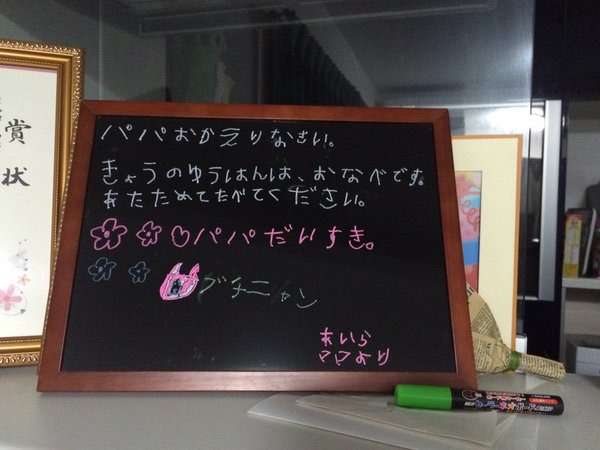 賞
状
パパおかえりなさい。
きょうのゆうはんは、おなべです。
あたためてたべてください。
♡パパだいすき。
ブチニャン
あいら
ママより